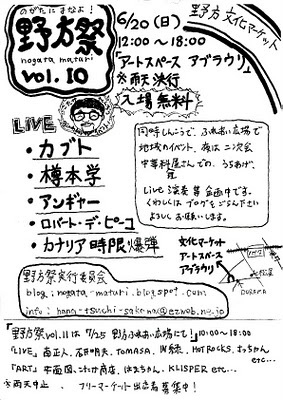 のがたにまなよ!
野方祭
nogata maturi
vol. 10
野方 文化マーケット
6/20 (日)
12:00〜18:00
「アートスペース アブラウリ」
※雨天決行
入場無料
LIVE
・カブト
・樽本学
・アンギャー
・ロバート・デ・ピーコ
・カナリア時限爆弾
同時しんこうで、ふれあい広場で
地域のイベント、夜は二次会
中華料屋さんでの、うちあげ、
Live演奏等企画中です。
くわしくはブログをごらん下さい
よろしくお願いします。
文化マーケット
アートスペース
アブラウリ
野方祭実行委員会
blog: nogata-maturi.blogspot.com
info: hana-tsuchi-sakana@ezweb.ne.jp
「野方祭vol.11は 7/25 野方ふれあい広場にて!」10:00〜18:00
「LIVE」南正人、石田明夫、TOMASA、HOT ROCKS、
etc...
「ART」KLISPER etc...
※雨天中止、フリーマーケット出店者募集中!